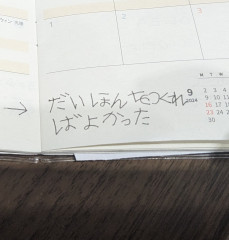 1
2
3
→ だいほんをつくれ
ばよかった
9
2024
M T W
2 3 4
9 10 11
16 17 18
23 24 25
30